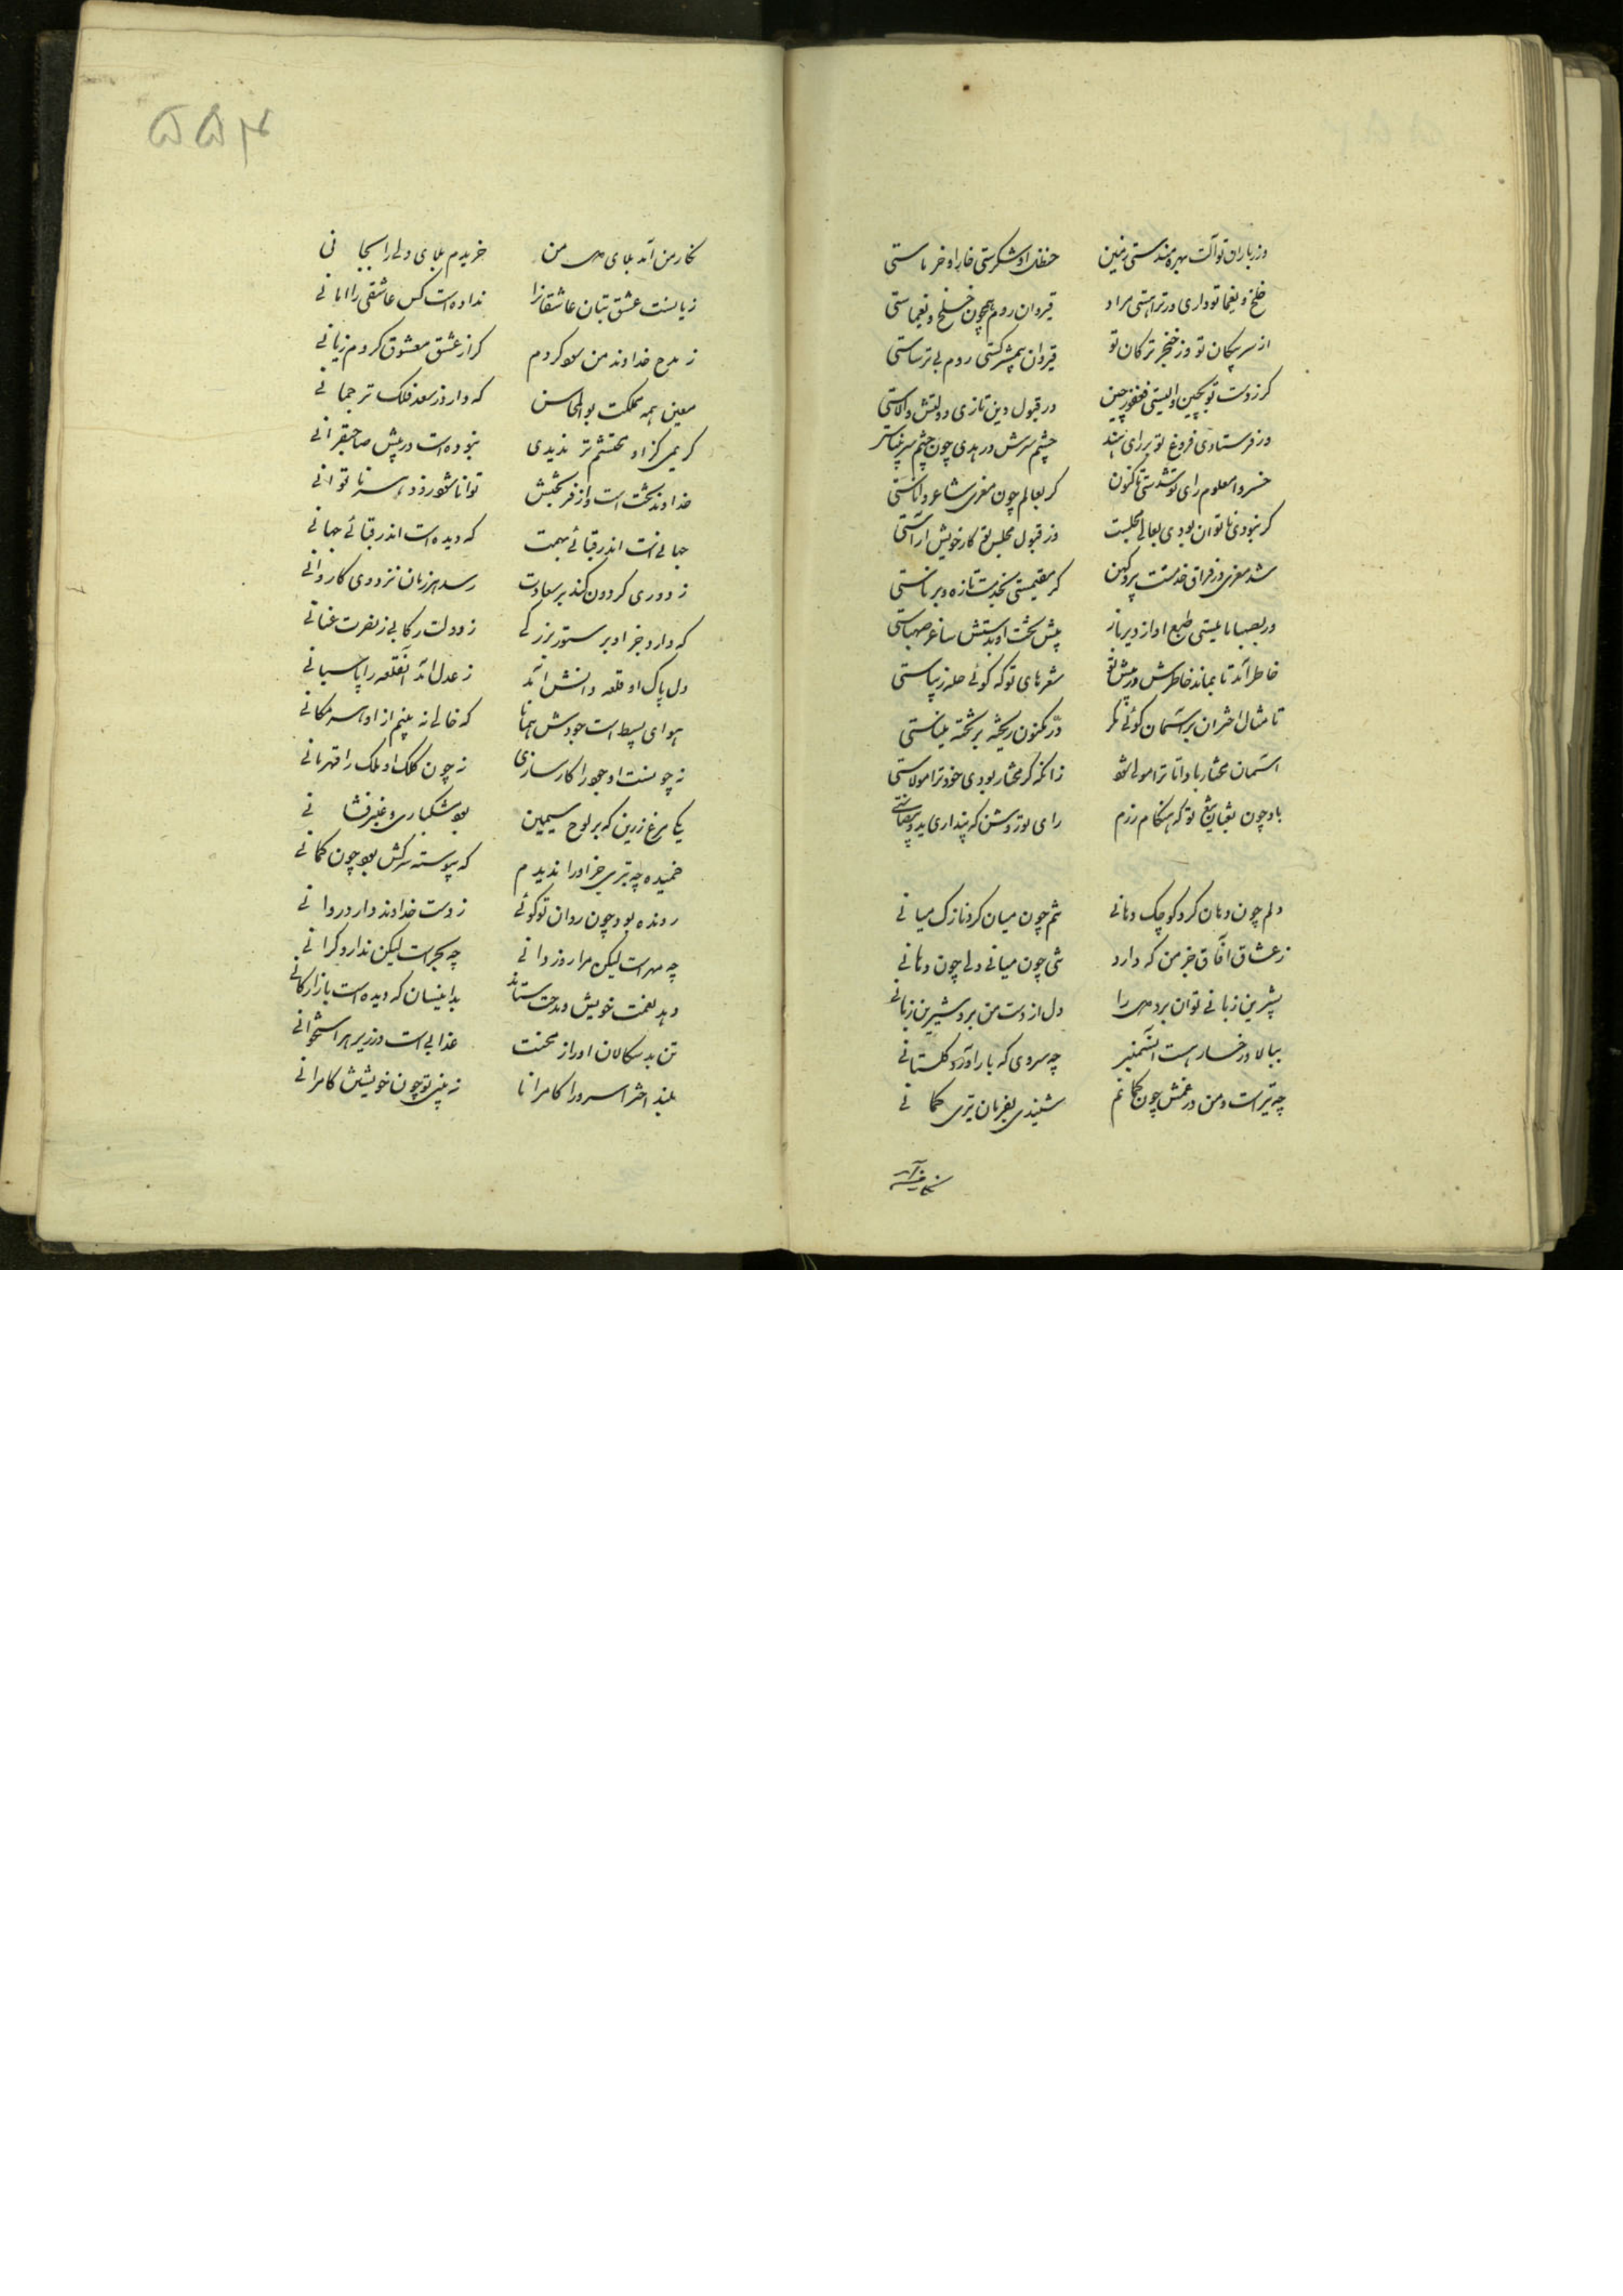 وز باران تو آلت بهره‌مندستی زمین حنظل او شکرستی خار او خرماستی
خلخ و یغما تو داری ور ترا هستی مراد قیروان روم همچون خلخ و یغماستی
از سر پیکان تو وز خنجر ترکان تو قیروان بی‌مشرکستی روم بی ترساستی
گر ز دست تو بچین والیستی فغفور چین در قبول دین تازی دولتش والاستی
ور فرستادی فروغ تو برای هند چشم سرش در هدی چون چشم سر بیناستی
خسروا معلوم رای تو شدستی تاکنون گر بعالم چون معزی شاعر داناستی
گر نبودی ناتوان بودی بعالی مجلست وز قبول مجلس تو کار خویش آراستی
شد معزی در فراق خدمتت پیر و کهن گر مقیمستی بخدمت تازه و برناستی
ور بصهبا مایلستی طبع او از دیرباز پیش تخت او بدستش ساغر صهباستی
خاطر آمد تا بماند خاطرش در پیش تو شعرهای تو که گوئی حله زیباستی
تا مثال اختران بر آسمان گوئی مگر در مکنون ریخته بر تخته میناستی
آسمان مختار باد اما ترا مولی شده زانکه گر مختار بودی خود ترا مولاستی
باد چون ثعبان تیغ تو که هنگام رزم رای تو روشن که پنداری ید بیضاستی
دلم چون دهان کرد کوچک دهانی تنم چون میان کرد نازک میانی
ز عشاق آفاق جز من که دارد تنی چون میانی دلی چون دهانی
بشیرین زبانی توان برد دل را دل از دست من برد شیرین زبانی
ببالا و رخسار هست آن سمنبر چه سروی که بار آورد گلستانی
چه تیر است و من در غمش چون کمانم شنیدی بفرمان تیری کمانی
نگار من آمد
۵۵۴
نگار من آمد بلای دل من خریدم بلای دلی را بجانی
زیانست عشق بتان عاشقانرا نداده‌است کس عاشقی را امانی
ز مدح خداوند من سود کردم گر از عشق معشوق کردم زیانی
معین همه مملکت بوالمحاسن که دارد ز سعد فلک ترجمانی
کریمی کز او محتشم‌تر ندیدی نبوده‌است در پیش صاحبقرانی
خداوند بخت است و از فر بختش توانا شود زود هر ناتوانی
جهانی است اندر قبائی بهمت که دیده است اندر قبائی جهانی
ز دوری گردون کند بر سعادت رسد هر زمان نزد وی کاروانی
که دارد جز او بر ستور بزرگی ز دولت رکابی ز نصرت عنانی
دل پاک او قلعه دانش آمد ز عدل آمد آن قلعه را پاسبانی
هوای بسیط است جودش همانا که خالی نه بینم از او هر مکانی
نه چو سنت او جود را کارسازی نه چون کلک او ملک را قهرمانی
یکی مرغ زرین که بر لوح سیمین بود مشکباری و عنبرفشانی
خمیده چه تیری جز او را ندیدم که پیوسته سرکش بود چون کمانی
رونده بود چون روان تو گوئی ز دست خداوند دارد روانی
چه مهر است لیکن مرا روز وانی چه بحر است لیکن ندارد کرانی
دهد نعمت خویش و مدحت ستاند بدانسان که دیده است بازارگانی
تن بدسگالان او را ز محنت عذابی است در زیر هر استخوانی
بلند اختر اسرورا کامرانا نه بینی تو چون خویشتن کامرانی